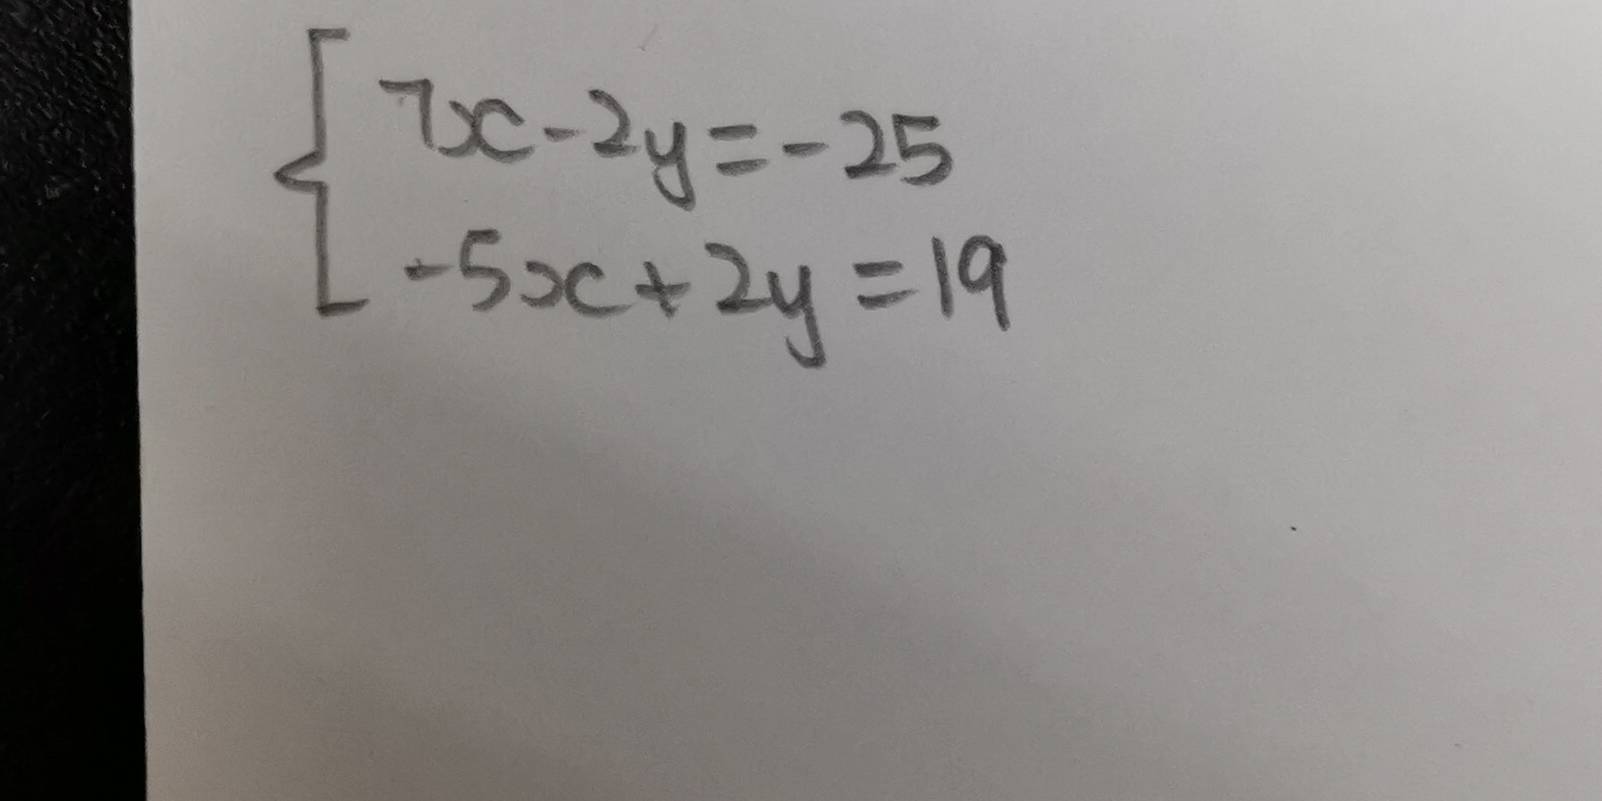 7x-2y=-25
-5x+2y=19